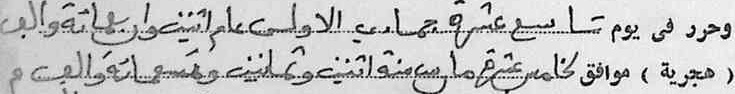 وحرر في يوم تاسع عشرة جمادى الاولى عام اثنين واربعمائة والف
( هجرية ) موافق لخامس عشرة مارس سنة اثنين وثمانين وتسعمائة والف م